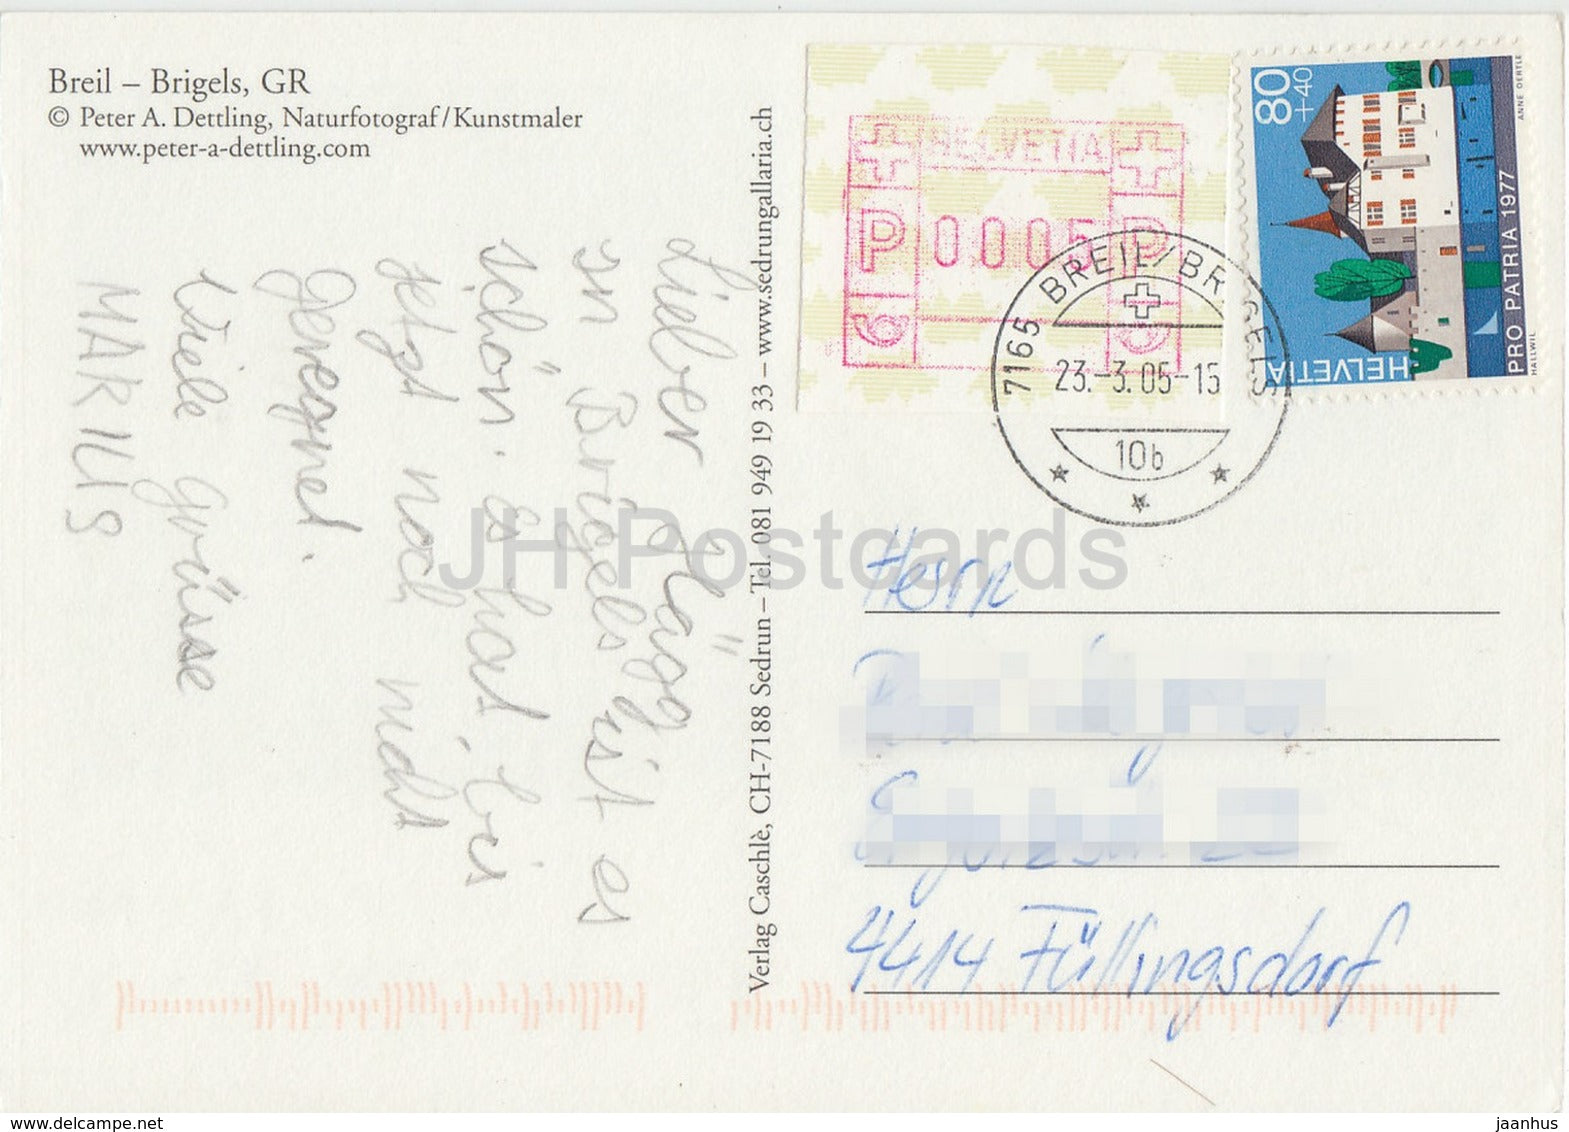 Breil – Brigels, GR
© Peter A. Dettling, Naturfotograf/Kunstmaler
www.peter-a-dettling.com
Lieber Hägg
in Brigels ist es
schön. es hat bis
jetzt noch nicht
geregnet.
Viele Grüsse
MARIUS
Verlag Caschlè, CH-7188 Sedrun – Tel. 081 949 19 33 – www.sedrungallaria.ch
HELVETIA
P 0005 P
6 6
80
+40
HELVETIA
PRO PATRIA 1977
HALLWIL
ANNE OERTLE
7165 BREIL/BRIGELS
23.-3.05-15
10b
JH Postcards
Herrn
4414 Füllingsdorf
www.delcampe.net
jaanhus